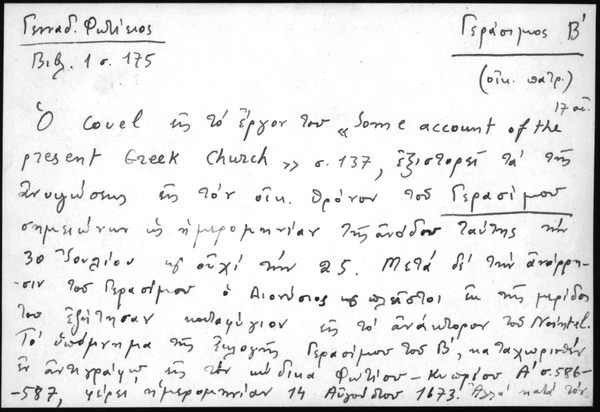 Γενναδ. Φωτίειος
Βιβ. 1 σ. 175
Γεράσιμος Β'
(οἰκ. πατρ.)
17 αἰ.
Ὁ Covel εἰς τό ἔργον του «Some account of the
present Greek Church» σ. 137, ἐξιστορεῖ τά τῆς
ἀνυψώσεως εἰς τόν οἰκ. θρόνον τοῦ Γερασίμου
σημειώνων ὡς ἡμερομηνίαν τῆς ἀνόδου ταύτης τήν
30 Ἰουλίου καί οὐχί τήν 25. Μετά δέ τήν ἀνάρρη-
σιν τοῦ Γερασίμου ὁ Διονύσιος καί πλεῖστοι ἐκ τῆς μερίδος
του ἐζήτησαν καταφύγιον εἰς τό ἀνάκτορον τοῦ Nointel.
Τό ὑπόμνημα τῆς ἐκλογῆς Γερασίμου τοῦ Β', καταχωρισθέν
ἐν ἀντιγράφῳ εἰς τόν κώδικα Φωτίου - Κυωρίου Α' σ. 586-
-587, φέρει ἡμερομηνίαν 14 Αὐγούστου 1673. Ἀλλά κατά τόν